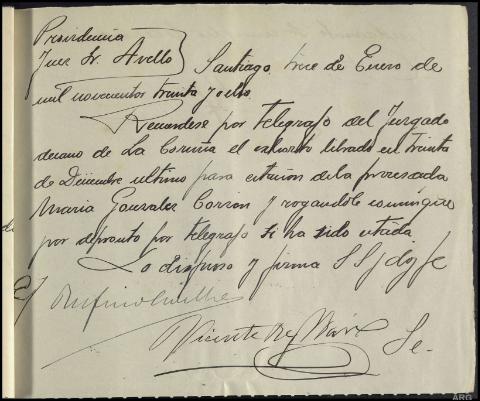 Providencia
Juez Sr. Avello
Santiago, trece de Enero de
mil novecientos treinta y ocho.
Recuerdese por telegrafo del Juzgado
decano de La Coruña el exhorto librado en treinta
de Diciembre ultimo para citación de la procesada
Maria Gonzalez Corron y rogandole comunique
por de pronto por telegrafo si ha sido citada
Lo dispuso y firma S S doy fe
Vicente Rey
Se-
ARG